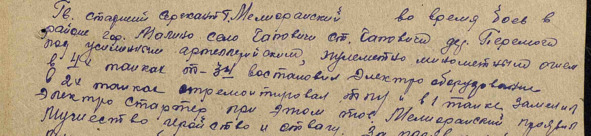 Гв. старший сержант т. Мелиоранский во время боев в
районе гор. Малино село Гаповичи ст. Гаповичи дер. Перемога
под усиленным артиллерийским, пулеметно минометным огнем
в 4х танках Т-34 востановил Электрооборудование
в 2х танках отремонтировал ТПУ и в 1 танке заменил
Электро Стартер при этом тов. Мелиоранский проявил
мужество геройство и отвагу За